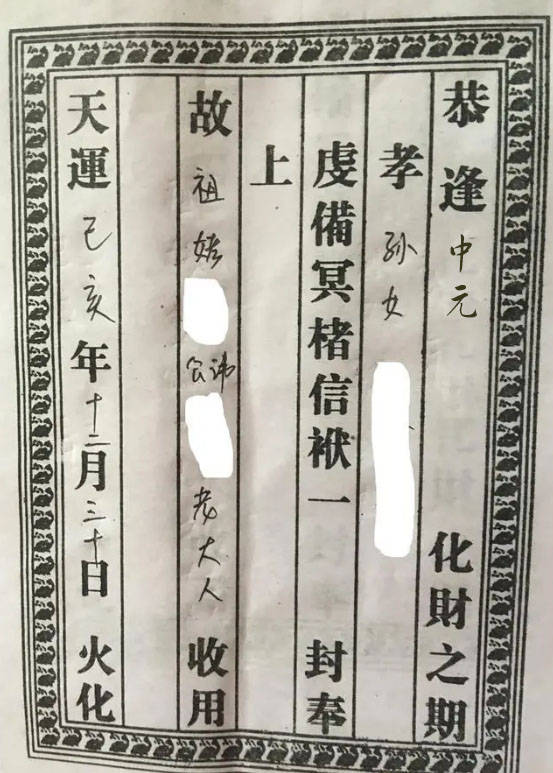 恭逢中元化財之期
孝孫女
虔備冥楮信袱一封奉
上
故祖妣公諱老大人收用
天運己亥年十二月三十日火化